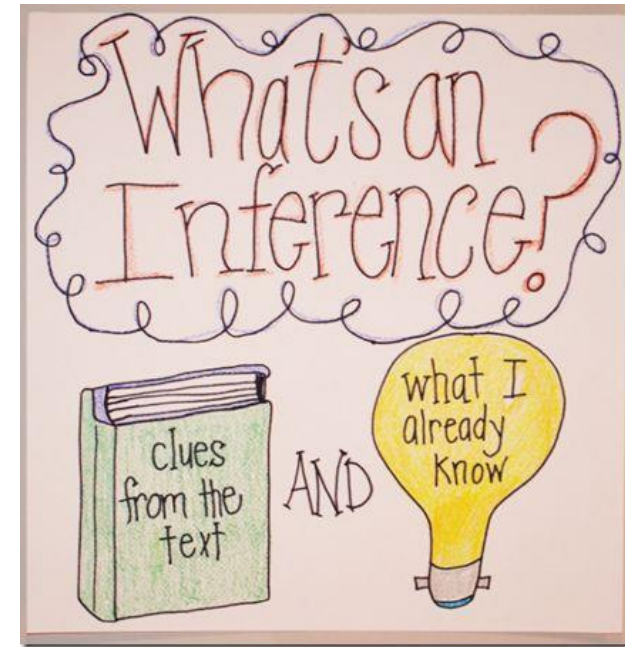 What's an
Inference?
clues
from the
text
AND
what I
already
know